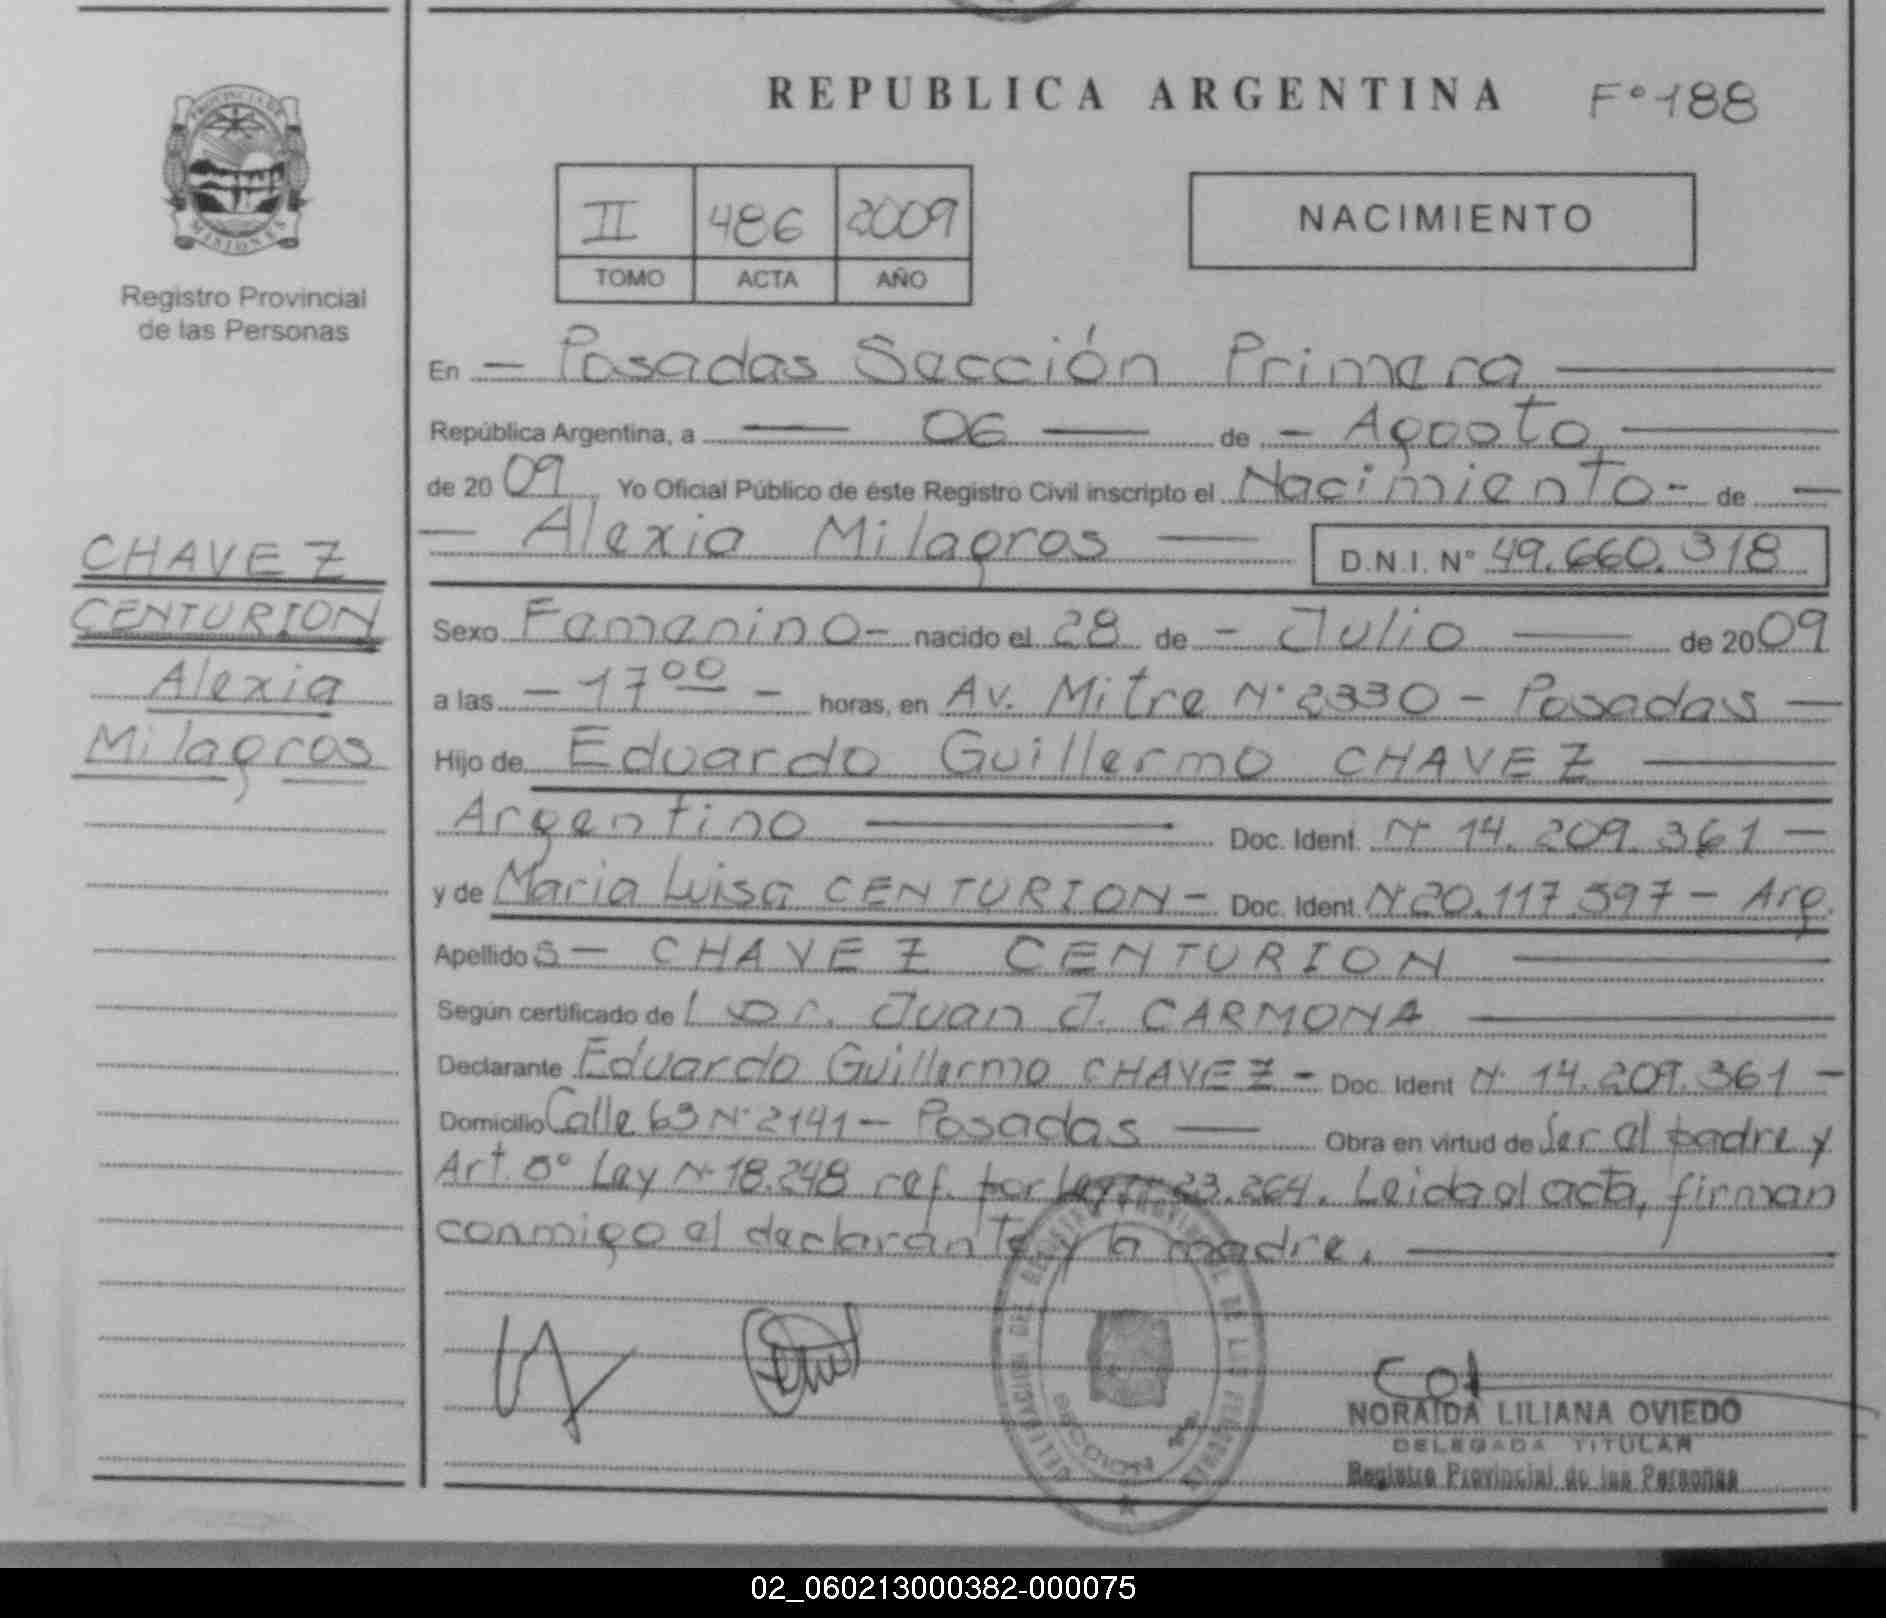 REPUBLICA ARGENTINA Fº 188
PROVINCIA DE
MISIONES
Registro Provincial
de las Personas
II 486 2009
TOMO ACTA AÑO
NACIMIENTO
En - Posadas Sección Primera
República Argentina, a - 06 - de - Agosto
de 2009 Yo Oficial Público de éste Registro Civil inscripto el Nacimiento - de -
- Alexia Milagros - D.N.I. Nº 49.660.318
CHAVEZ
CENTURION
Alexia
Milagros
Sexo Femenino - nacido el 28 de - Julio - de 2009
a las - 17 00 - horas, en Av. Mitre Nº 2330 - Posadas -
Hijo de Eduardo Guillermo CHAVEZ
Argentino - Doc. Ident. Nº 14.209.361 -
y de Maria Luisa CENTURION - Doc. Ident. Nº 20.117.597 - Arg.
Apellidos - CHAVEZ CENTURION
Según certificado de Dr. Juan J. CARMONA
Declarante Eduardo Guillermo CHAVEZ - Doc. Ident Nº 14.209.361 -
Domicilio Calle 63 Nº 2141 - Posadas - Obra en virtud de Ser el padre y
Art. 5º Ley Nº 18.248 ref. por Ley Nº 23.264. Leida el acta, firman
conmigo el declarante y la madre.
NORAIDA LILIANA OVIEDO
DELEGADA TITULAR
Registro Provincial de las Personas
02_060213000382-000075